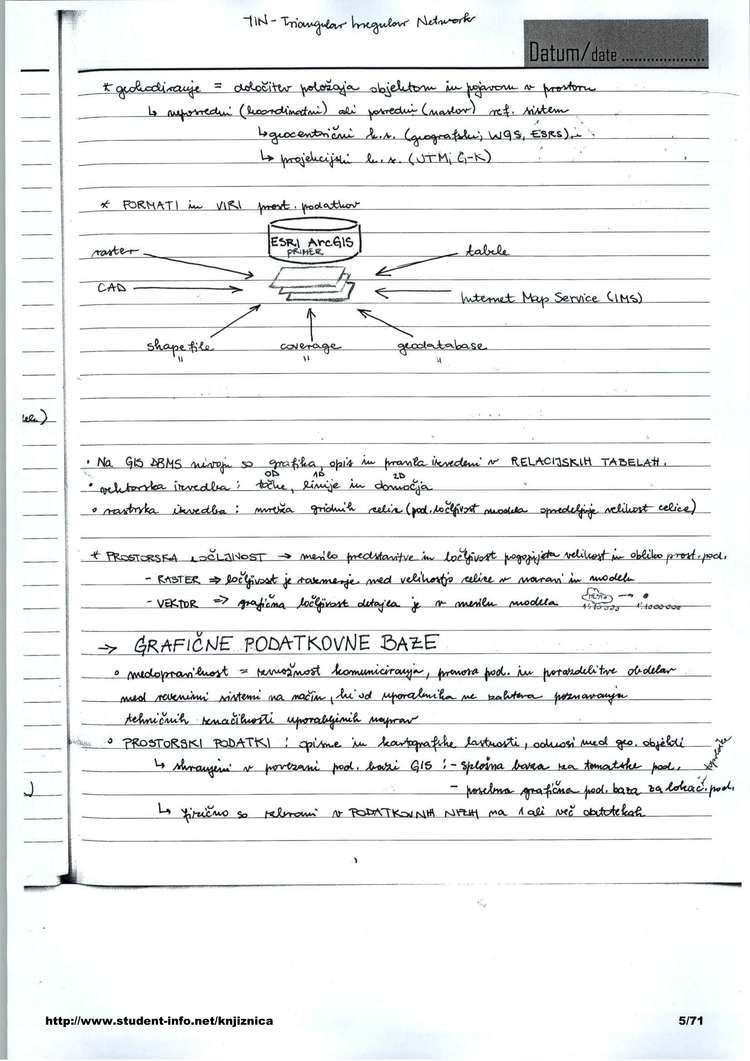 TIN - Triangular Irregular Network
Datum/date ....................
* geokodiranje = določitev položaja objektom in pojavom v prostoru
↳ neposredni (koordinatni) ali posredni (naslov) ref. sistem
↳ geocentrični k.s. (geografski, WGS, ESRS)
↳ projekcijski k.s. (UTM, G-K)
* FORMATI in VIRI prost. podatkov
ESRI ArcGIS
PRIMER
raster
tabele
CAD
Internet Map Service (IMS)
shape file
coverage
geodatabase
• Na GIS DBMS nivoju so grafika, opis in pravila izvedeni v RELACIJSKIH TABELAH.
0D 1D 2D
• vektorska izvedba : točke, linije in območja
• rastrska izvedba : mreža gridnih celic (pod. ločljivost modela opredeljuje velikost celice)
* PROSTORSKA LOČLJIVOST → merilo predstavitve in ločljivost pogojujeta velikost in obliko prost. pod.
- RASTER ⇒ ločljivost je razmerje med velikostjo celice v naravi in modelu
- VEKTOR ⇒ grafična ločljivost detajla je v merilu modela
→ GRAFIČNE PODATKOVNE BAZE
• medopravilnost = zmožnost komuniciranja, prenosa pod. in porazdelitve obdelav
med raznimi sistemi na način, ki od uporabnika ne zahteva poznavanja
tehničnih značilnosti uporabljenih naprav
• PROSTORSKI PODATKI : opisne in kartografske lastnosti, odnosi med geo. objekti
↳ shranjeni v povezani pod. bazi GIS : - splošna baza za tematske pod.
- posebna grafična pod. baza za lokac. pod.
↳ fizično so zbrani v PODATKOVNIH NIZIH na 1 ali več datotekah
http://www.student-info.net/knjiznica
5/71